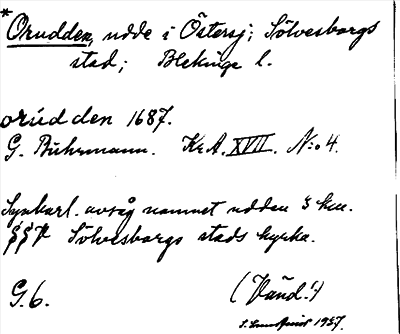 *Orudden, udde i Östersj; Sölvesborgs
stad; Blekinge l.
orúdden 1687.
G. Buhrmann. Kr.A. XVII. N:o 4.
Synbarl. avsåg namnet udden 3 km.
SSV Sölvesborgs stads kyrka.
G.6. (Vañd.!)
1937.